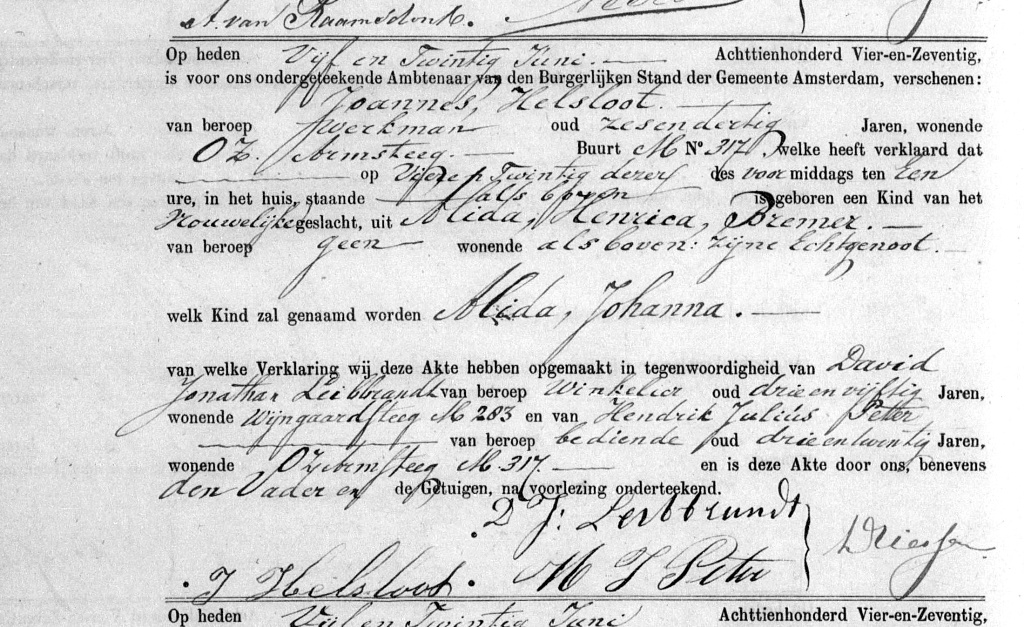 A. van Raamsdonk.
Op heden Vijf en Twintig Juni. Achttienhonderd Vier-en-Zeventig,
is voor ons ondergeteekende Ambtenaar van den Burgerlijken Stand der Gemeente Amsterdam, verschenen:
Joannes, Helsloot.
van beroep werkman oud zesendertig Jaren, wonende
OZ. Armsteeg. Buurt M No 317, welke heeft verklaard dat
op Vier en Twintig dezer des voormiddags ten Een
ure, in het huis, staande als boven is geboren een Kind van het
Vrouwelijke geslacht, uit Alida, Henrica, Bremer.
van beroep geen wonende als boven: zijne Echtgenoot.
welk Kind zal genaamd worden Alida, Johanna.
van welke Verklaring wij deze Akte hebben opgemaakt in tegenwoordigheid van David
Jonathan Leibbrandt van beroep Winkelier oud drieenvijftig Jaren,
wonende Wijngaardsteeg M 283 en van Hendrik Julius Peter
van beroep bediende oud drieentwintig Jaren,
wonende OZ Armsteeg M. 317. en is deze Akte door ons, benevens
den Vader en de Getuigen, na voorlezing onderteekend.
D J: Leibbrandt
J Helsloot. H J Peter
Op heden Vijf en Twintig Juni Achttienhonderd Vier-en-Zeventig,